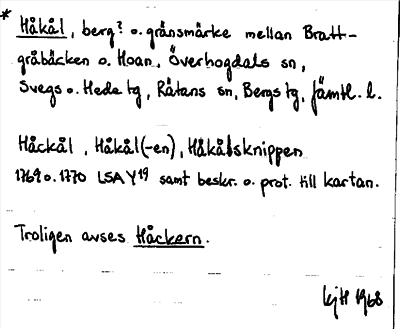 * Håkål, berg? o. gränsmärke mellan Bratt-
gråbäcken o. Hoan, Överhogdals sn,
Svegs o. Hede tg, Rätans sn, Bergs tg, Jämtl. l.
Håckål, Håkål(-en), Håkålsknippen
1769 o. 1770 LSA Y19 samt beskr. o. prot. till kartan.
Troligen avses Håckern.
kjH 1968